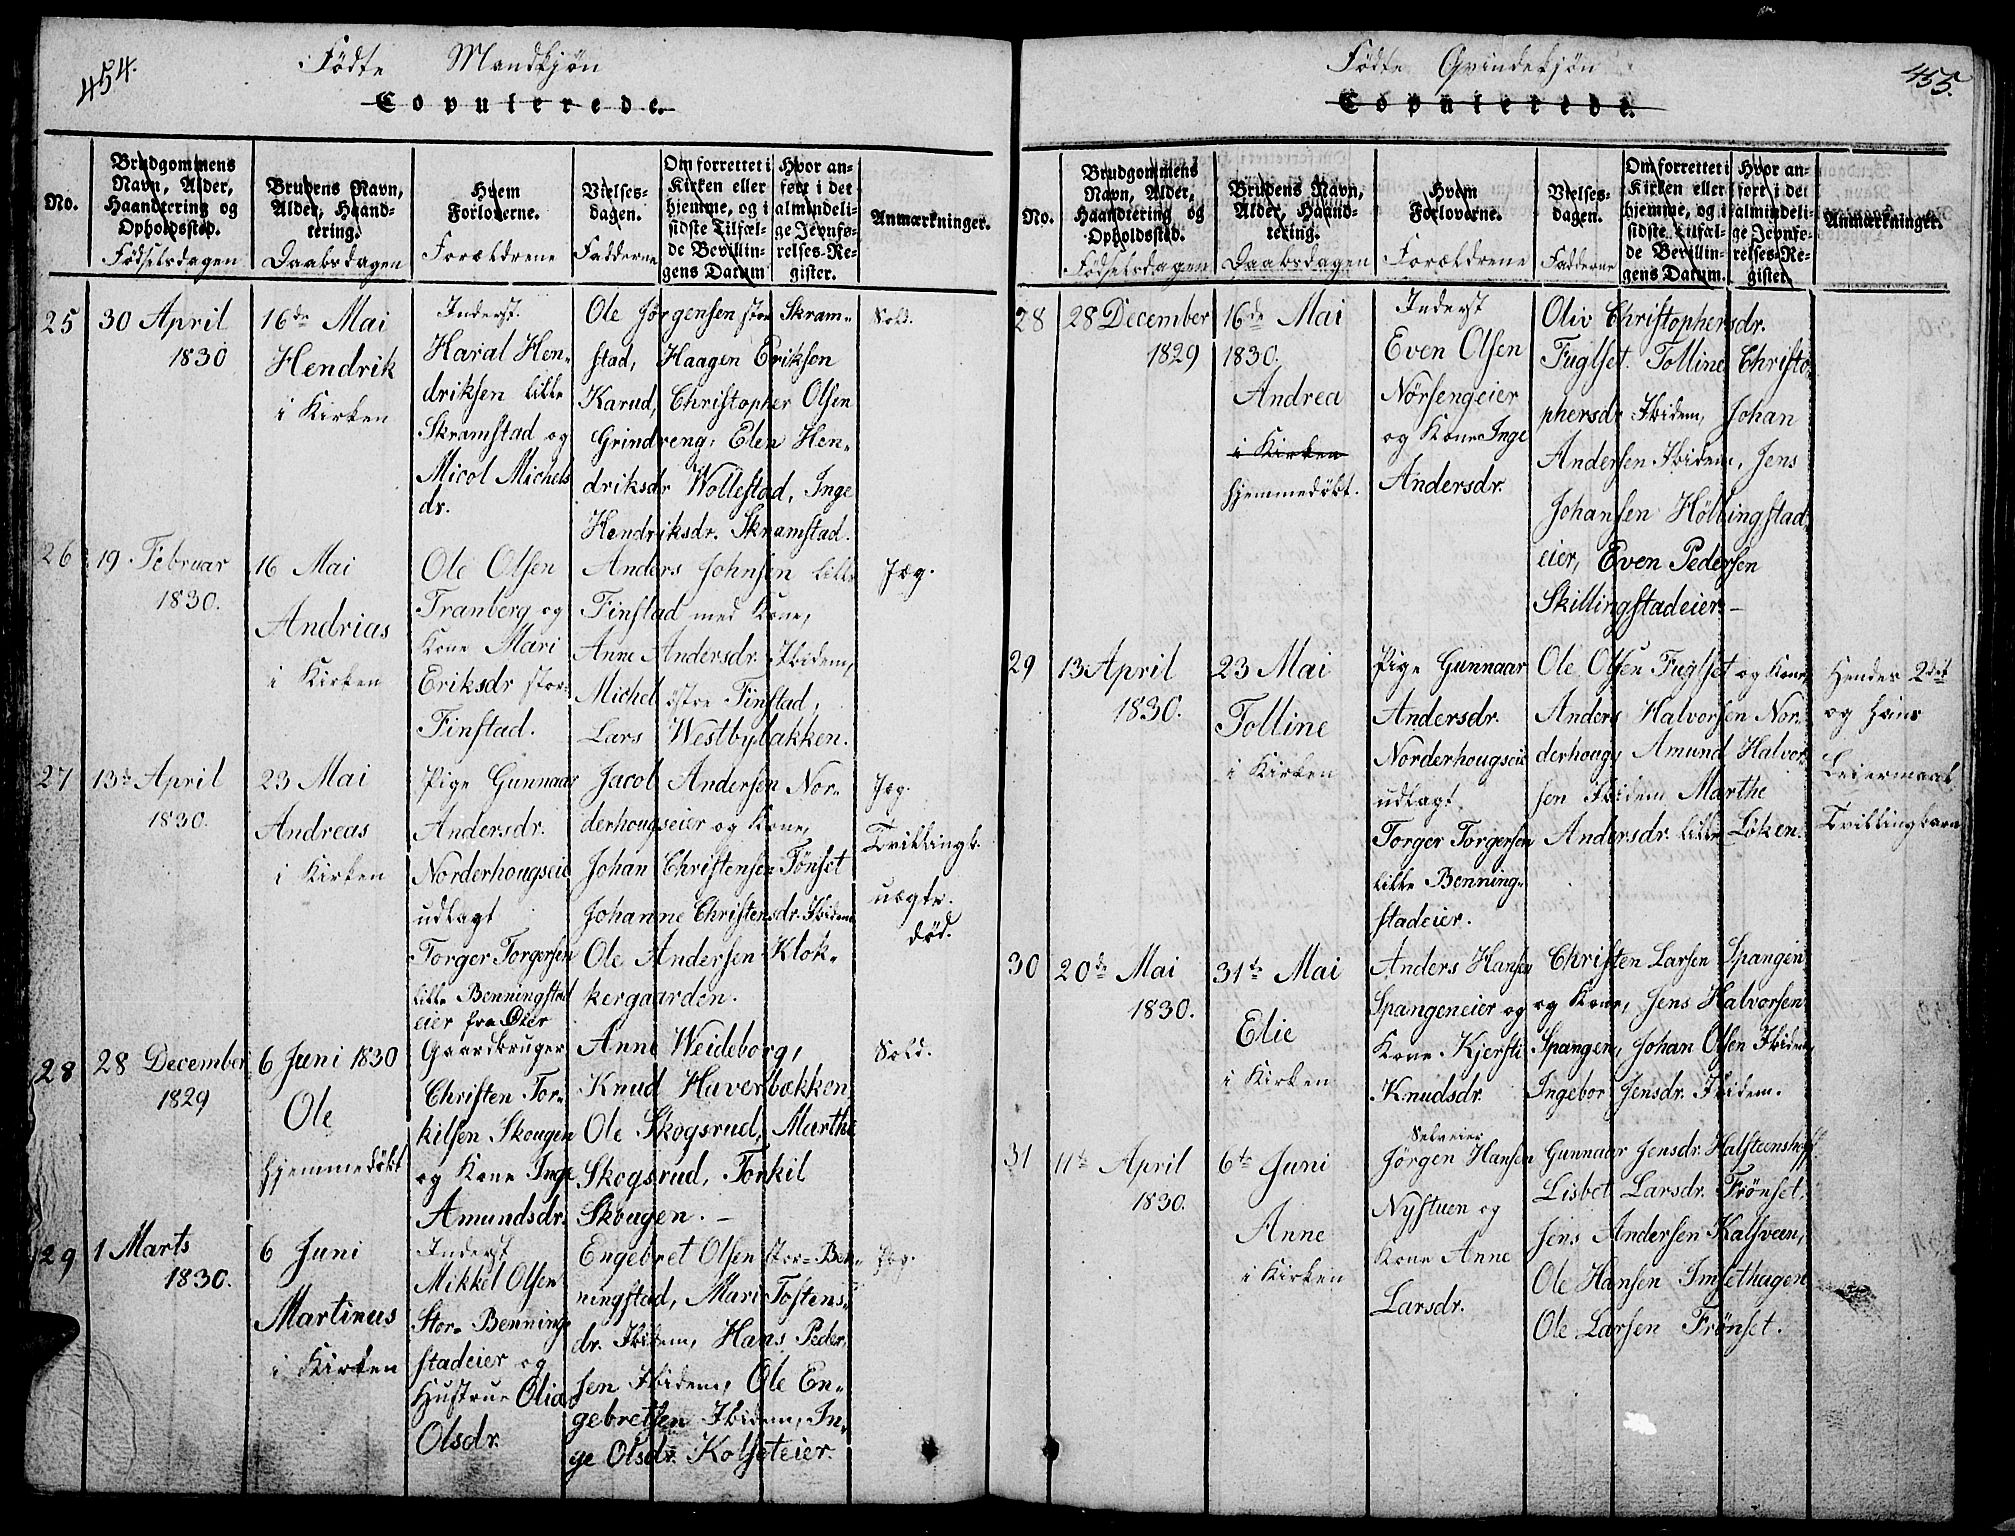 454.
Fødte Mandkjøn
Copulerede.
No.
Brudgommens Navn, Alder, Haandtering og Opholdssted.
Fødselsdagen
Brudens Navn, Alder, Haandtering.
Daabsdagen
Hvem Forloverne.
Forældrene
Vielsesdagen.
Fadderne
Om forrettet i Kirken eller hjemme, og i sidste Tilfælde Bevillingens Datum
Hvor anført i det almindelige Jevnførelses-Register.
Anmærkninger.
25
30 April
1830
16de Mai
Hendrik
i Kirken
Inderst.
Haral Hen-
driksen lille
Skramstad og
Micol Michels
dr.
Ole Jørgensen stor Skram-
stad, Haagen Erikson
Karud, Christopher Olsen
Grindveng, Elen Hen-
driksdr Wollestad, Inge
Hendriksdr. Skramstad.
Sold.
26
19 Februar
1830.
16 Mai
Andrias
i Kirken
Ole Olsen
Tranberg og
Kone Mari
Eriksdr stor-
Finstad.
Anders Johnsen lille
Finstad med Kone,
Anne Andersdr. Ibidem,
Michel østre Finstad,
Lars Westbybakken.
Jæg.
27
13de April
1830.
23 Mai
Andreas
i Kirken
Pige Gunnaar
Andersdr.
Norderhougseie
udlagt
Torger Torgersen
lille Benningstad
eier fra Øier
Jacob Andersen Nor-
derhougseier og Kone,
Johan Christensen Tønset
Johanne Christensdr. Ibidem
Ole Andersen Klok-
kergaarden.
Jæg.
Tvillingb.
uægte.
død.
28
28 December
1829
6 Juni 1830
Ole
hjemmedøbt
Gaardbruger
Christen Tor-
kilsen Skougen
og Kone Inge
Amundsdr.
Anne Weideborg,
Knud Haversbækken
Ole Skogsrud, Marthe
Skogsrud, Torkil
Skougen. —
Sold.
29
1 Marts
1830.
6 Juni
Martinus
i Kirken
Inderst
Mikkel Olsen
Stor- Benning-
stadeier og
Hustrue Olia
Olsdr.
Engebret Olsen stor- Ben-
ningstad, Mari Tostens-
dr. Ibidem, Hans Peder-
sen Ibidem, Ole En-
gebretsen Ibidem, In-
ge Olsdr. Kolseteier.
Jæg.
455.
Fødte Qvindekjøn
Copulerede.
No.
Brudgommens Navn, Alder, Haandtering og Opholdssted.
Fødselsdagen
Brudens Navn, Alder, Haandtering.
Daabsdagen
Hvem Forloverne.
Forældrene
Vielsesdagen.
Fadderne
Om forrettet i Kirken eller hjemme, og i sidste Tilfælde Bevillingens Datum.
Hvor anført i det almindelige Jevnførelses-Register.
Anmærkninger.
28
28 December
1829
16de Mai
1830.
Andrea
i Kirken
hjemmedøbt.
Inderst
Even Olsen
Nørsengeier
og Kone Inge
Andersdr.
Oliv Christophersdr.
Fuglset. Tolline Christo-
phersdr Ibidem, Johan
Andersen Ibidem, Jens
Johansen Hollingstad
eier, Even Pedersen
Skillingstadeier. —
29
13 April
1830.
23 Mai
Tolline
i Kirken
Pige Gunnaar
Andersdr.
Norderhougseie
udlagt
Torger Torgersen
lille Benning-
stadeier.
Ole Olsen Fuglset og Kone,
Anders Halvorsen Nor-
derhoug, Amund Halvor-
sen Ibidem Marthe
Andersdr. lille Løken.
Hendes 2det
og hans
Leiermaal
Tvillingbarn
30
20de Mai
1830.
31te Mai
Elie
i Kirken
Anders Hansen
Spangeneier og
Kone Kjersti
Knudsdr.
Christen Larsen Spangen
og Kone, Jens Halvorsen
Spangen, Johan Olsen Ibidem,
Ingebor Jensdr. Ibidem.
31
11te April
1830.
6te Juni
Anne
i Kirken
Selveier
Jørgen Hansen
Nystuen og
Kone Anne
Larsdr.
Gunnaar Jensdr. Halsteenshoff.
Lisbet Larsdr. Frønset,
Jens Andersen Kalsveen,
Ole Hansen Imsethagen
Ole Larsen Frønset.